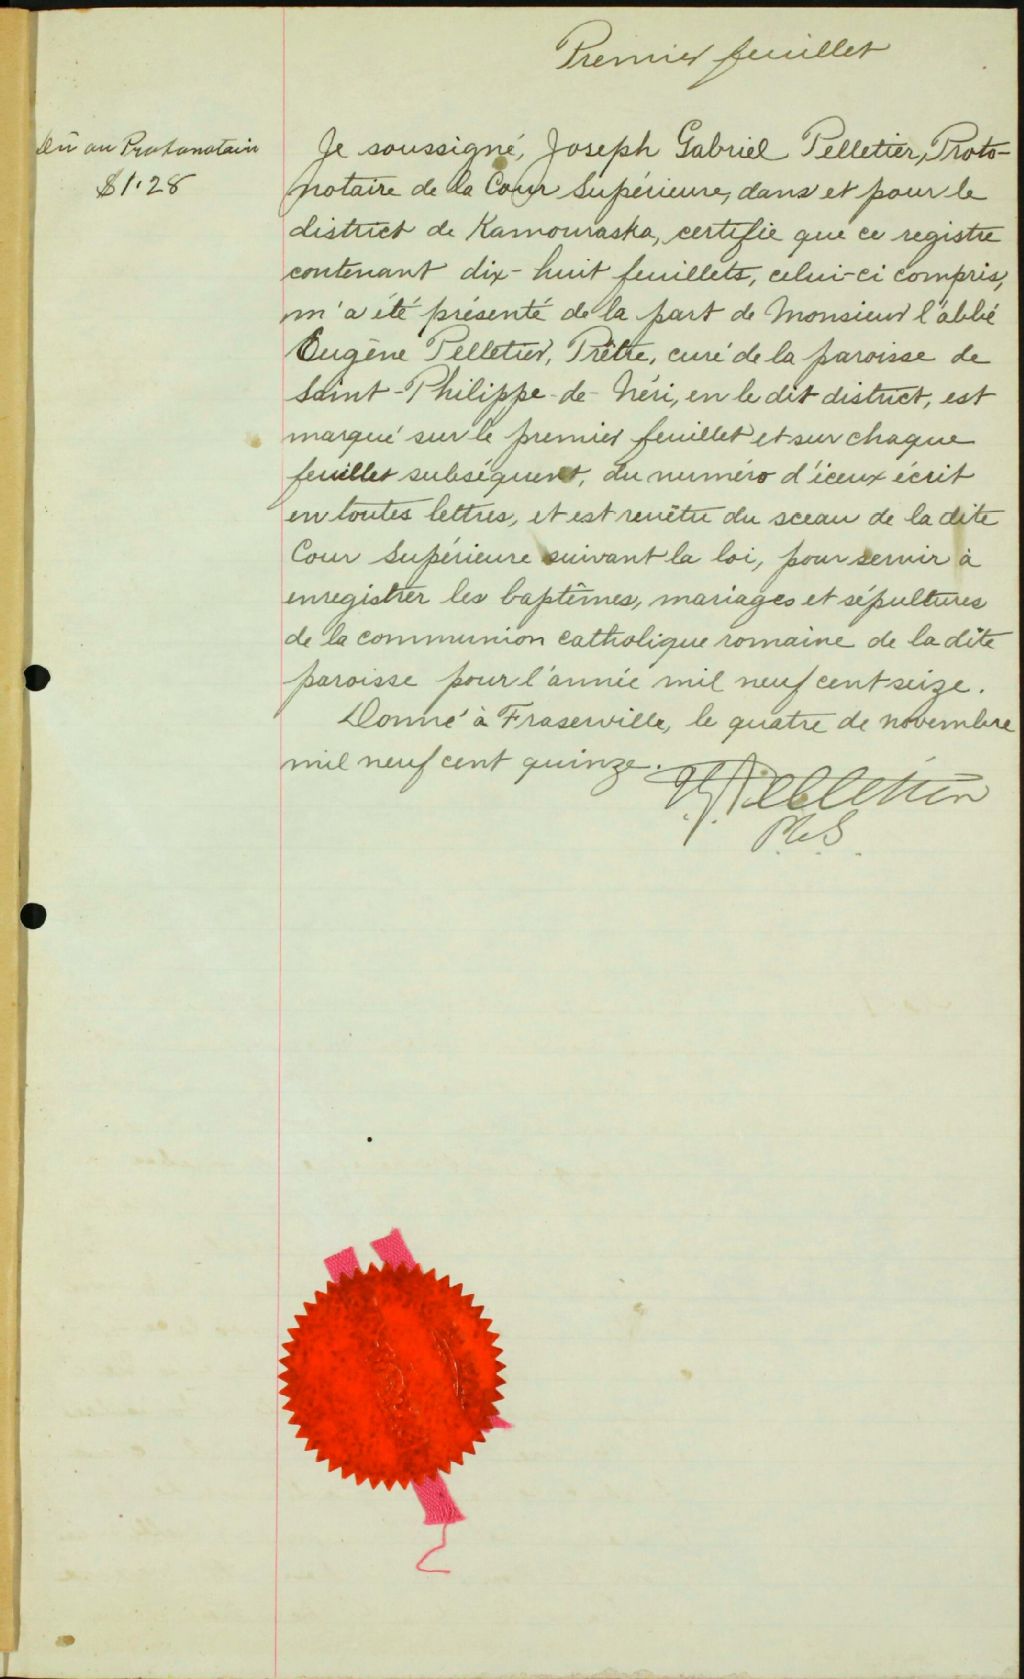 Premier feuillet
Dû au Protonotaire
$1.28
Je soussigné, Joseph Gabriel Pelletier, Proto-
notaire de la Cour Supérieure, dans et pour le
district de Kamouraska, certifie que ce registre
contenant dix-huit feuillets, celui-ci compris,
m'a été présenté de la part de Monsieur l'abbé
Eugène Pelletier, Prêtre, curé de la paroisse de
Saint-Philippe-de-Néri, en le dit district, est
marqué sur le premier feuillet et sur chaque
feuillet subséquent, du numéro d'iceux écrit
en toutes lettres, et est revêtu du sceau de la dite
Cour Supérieure suivant la loi, pour servir à
enregistrer les baptêmes, mariages et sépultures
de la communion catholique romaine de la dite
paroisse pour l'année mil neuf cent seize.
Donné à Fraserville, le quatre de novembre
mil neuf cent quinze.
J.G. Pelletier
P.C.S.